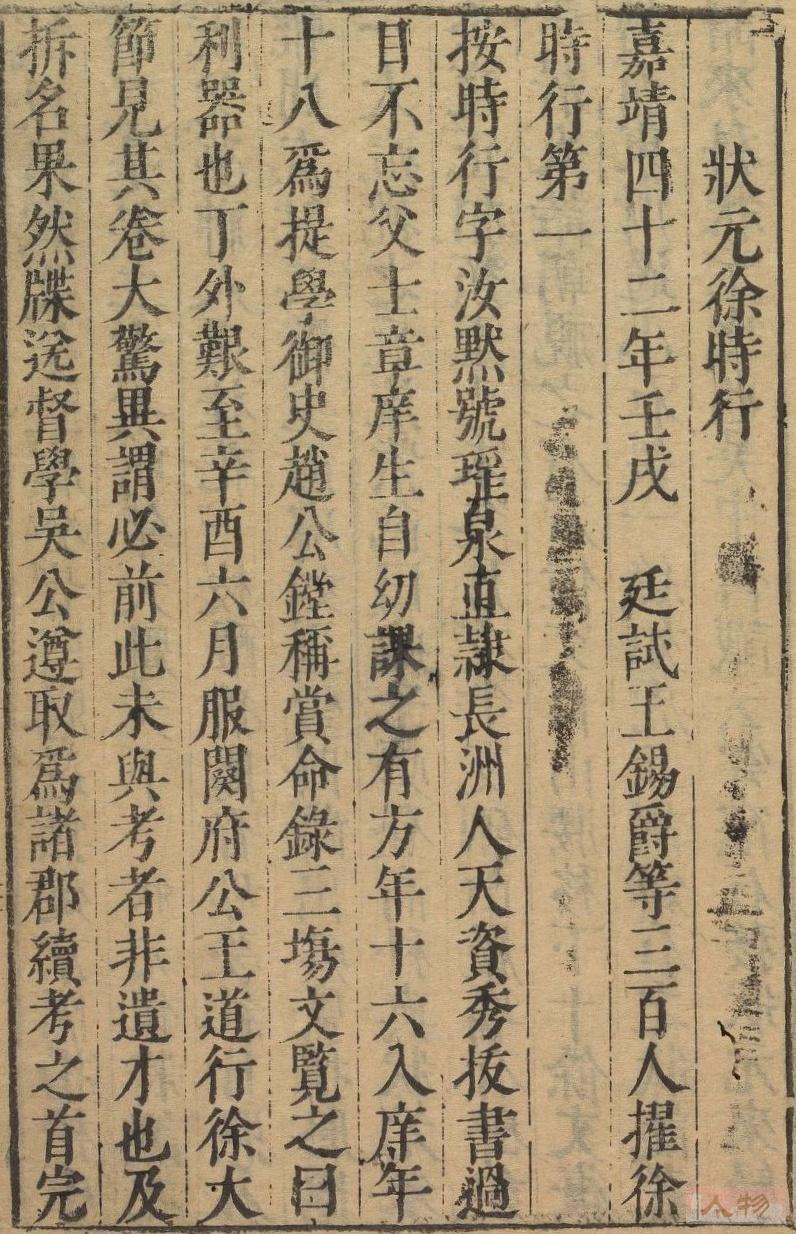 狀元徐時行
嘉靖四十二年壬戌　廷試王錫爵等三百人擢徐
時行第一
按時行字汝默號瑤泉直隸長洲人天資秀拔書過
目不忘父士章庠生自幼課之有方年十六入庠年
十八爲提學御史趙公鏜稱賞命錄三塲文覽之曰
利器也丁外艱至辛酉六月服闋府公王道行徐大
節見其卷大驚異謂必前此未與考者非遺才也及
拆名果然牒送督學吳公遵取爲諸郡續考之首完
人物